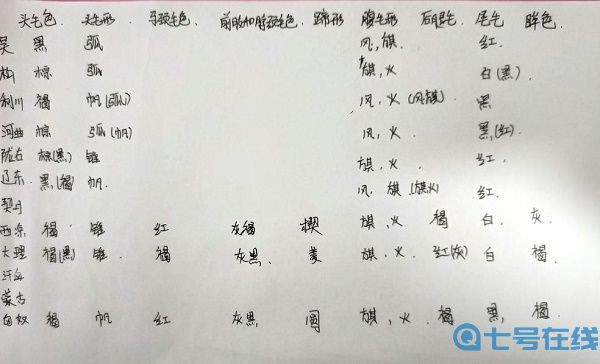 头毛色 头毛形 马颈毛色 前肢和背颈毛色 蹄形 腹毛形 后腿毛 尾毛 眸色
吴 黑 弧 风,旗, 红.
棕 弧 旗,火 白(黑).
利川 褐 帆(弧) 风,火(风旗). 黑
河曲 棕 弧(帆) 风,火. 黑(红).
陇右 棕(黑) 锥 旗,火. 红.
辽东 黑(褐) 帆. 风.旗(旗火) 红.
契丹
西凉 褐 锥 红 灰褐 楔 旗,火 褐 白. 灰.
大理 褐(黑) 锥. 褐 灰黑. 菱 旗.火. 红(灰) 白 褐
汗血
蒙古
匈奴 褐 帆 红 灰黑 圆 旗,火. 褐 黑, 褐.
七号在线